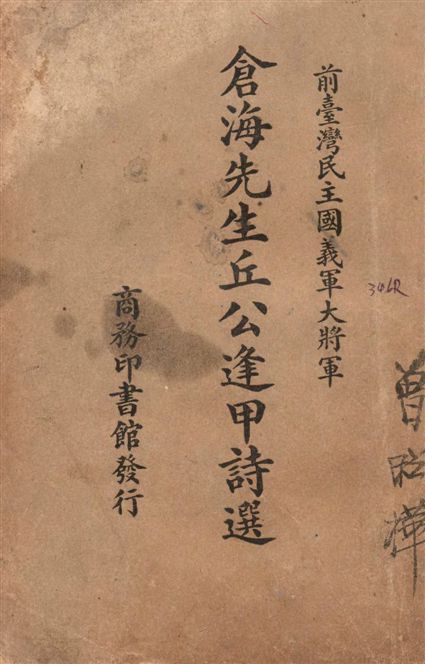 前臺灣民主國義軍大將軍
倉海先生丘公逢甲詩選
商務印書館發行